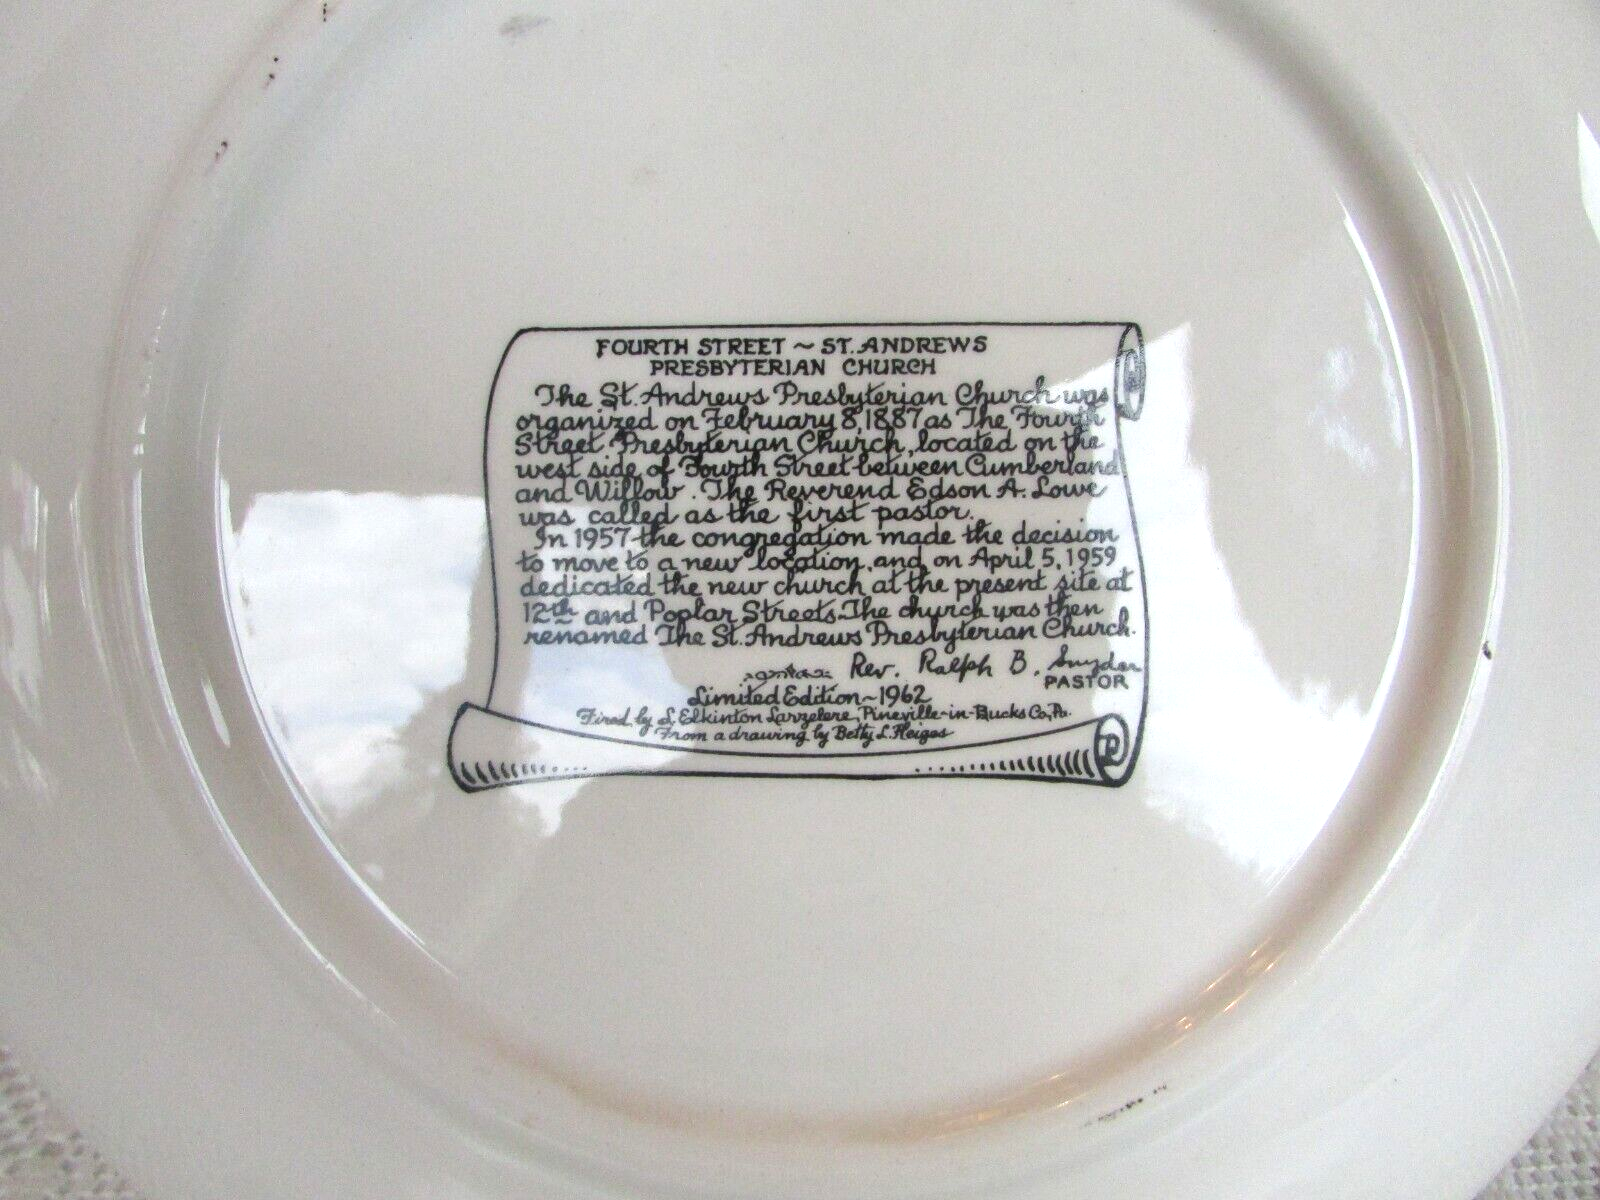 FOURTH STREET ~ ST. ANDREWS
PRESBYTERIAN CHURCH
The St. Andrews Presbyterian Church was
organized on February 8, 1887 as The Fourth
Street Presbyterian Church, located on the
west side of Fourth Street between Cumberland
and Willow. The Reverend Edson A. Lowe
was called as the first pastor.
In 1957 the congregation made the decision
to move to a new location, and on April 5, 1959
dedicated the new church at the present site at
12th and Poplar Streets. The church was then
renamed The St. Andrews Presbyterian Church.
Rev. Ralph B. Snyder
PASTOR
Limited Edition ~ 1962
Fired by S. Elkinton Larzelere, Pineville-in-Bucks Co., Pa.
From a drawing by Betty L. Heiges
P